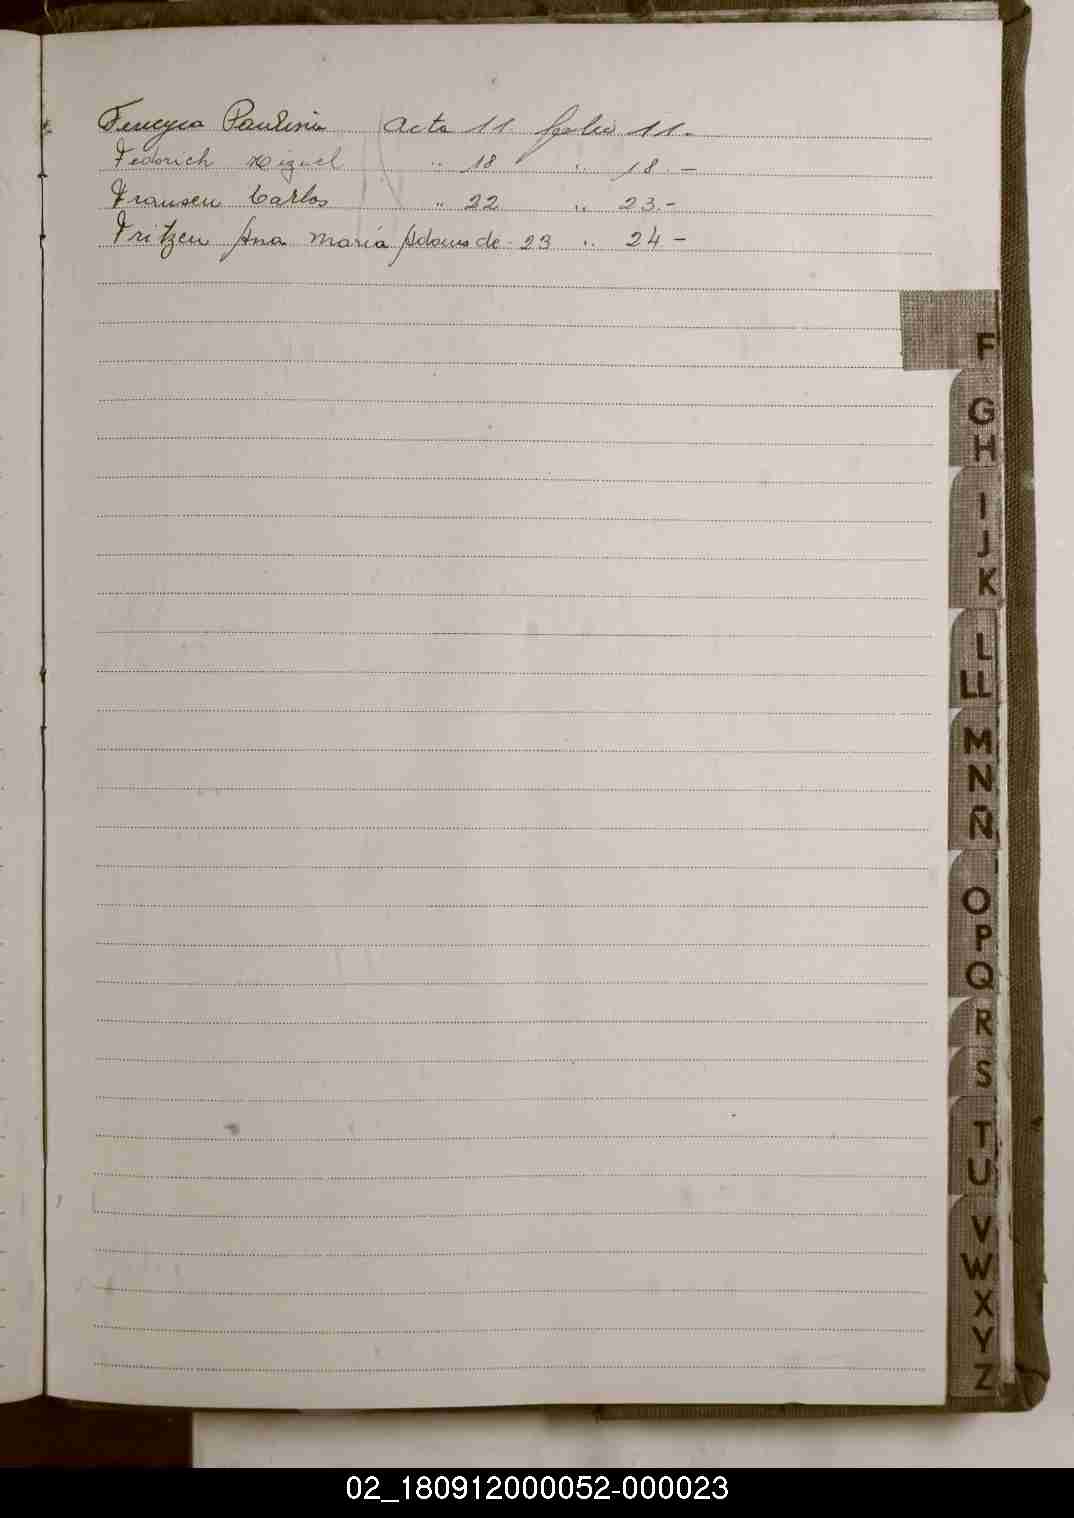 Ferreyra Paulina Acta 11 folio 11.-
Fedorich Miguel " 18 " 18.-
Fransen Carlos " 22 " 23.-
Fritzen Ana María Adams de - 23 " 24 -
F
G
H
I
J
K
L
LL
M
N
Ñ
O
P
Q
R
S
T
U
V
W
X
Y
Z
02_180912000052-000023